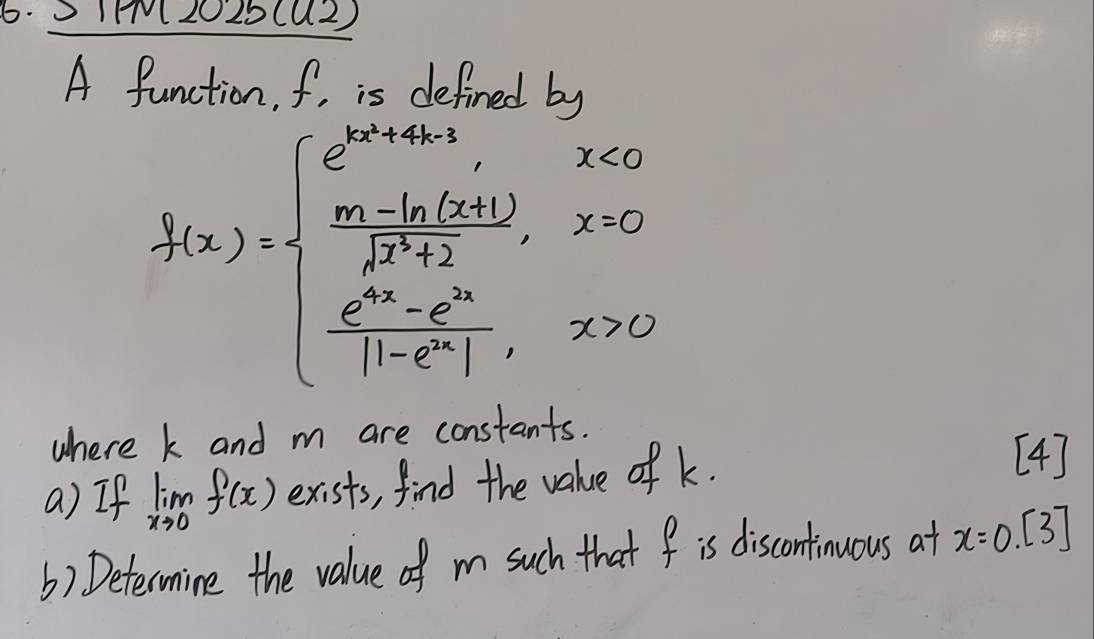 6. STPM 2025 (U2)
A function, f, is defined by
f(x) = { e^{kx²+4k-3}, x<0
(m - ln(x+1))/√(x³+2), x=0
(e^{4x} - e^{2x})/|1-e^{2x}|, x>0
where k and m are constants.
a) If lim_{x→0} f(x) exists, find the value of k. [4]
b) Determine the value of m such that f is discontinuous at x=0. [3]